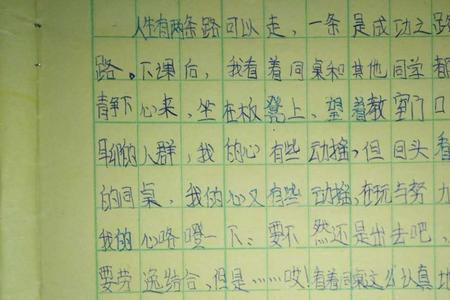 人生有两条路可以走，一条是成功之路
路。下课后，我看着同桌和其他同学都
静下心来，坐在板凳上，望着教室门口
聊的人群，我的心有些动摇，但回头看
的同桌，我的心又有些动摇，在玩与努力
我的心咯噔一下：要不然还是出去吧，
要劳逸结合，但是……哎！看着同桌这么认真地